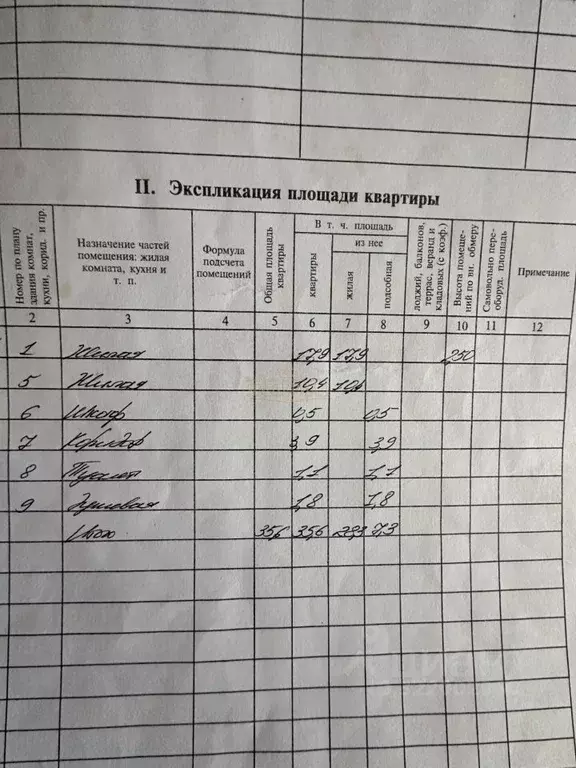 II. Экспликация площади квартиры
Номер по плану здания комнат, кухни, корид. и пр.
Назначение частей помещения: жилая комната, кухня и т. п.
Формула подсчета помещений
Общая площадь квартиры
В т. ч. площадь
из нее
квартиры
жилая
подсобная
лоджий, балконов, террас, веранд и кладовых (с коэф.)
Высота помещений по вн. обмеру
Самовольно переоборуд. площадь
Примечание
2 3 4 5 6 7 8 9 10 11 12
1 Жилая 17,9 17,9 250
5 Жилая 10,4 10,4
6 Шкаф 0,5 0,5
7 Коридор 3,9 3,9
8 Туалет 1,1 1,1
9 Душевая 1,8 1,8
Итого 35,6 35,6 28,3 7,3